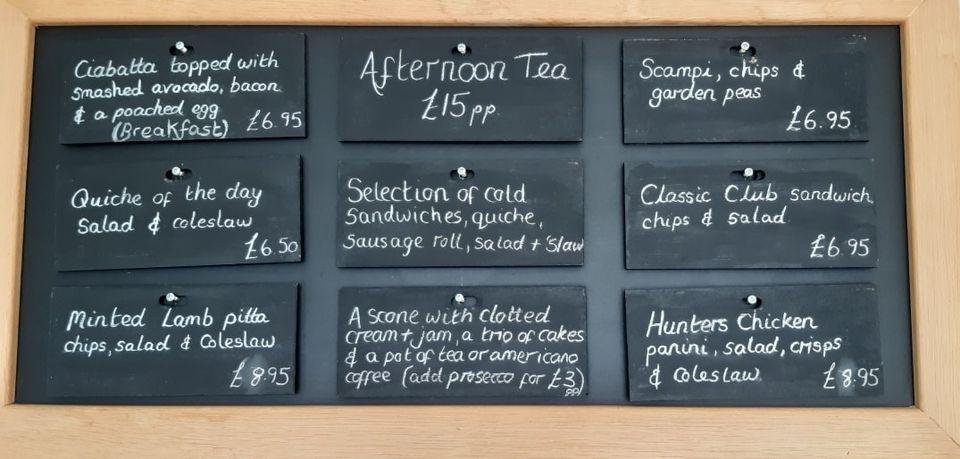 Ciabatta topped with
smashed avocado, bacon
& a poached egg
(Breakfast) £6.95
Quiche of the day
Salad & coleslaw
£6.50
Minted Lamb pitta
chips, salad & Coleslaw
£8.95
Afternoon Tea
£15pp
Selection of cold
Sandwiches, quiche,
Sausage roll, salad + 'Slaw
A scone with clotted
cream + jam, a trio of cakes
& a pot of tea or americano
coffee (add prosecco for £3)
pp
Scampi, chips &
garden peas
£6.95
Classic Club sandwich
chips & salad
£6.95
Hunters Chicken
panini, salad, crisps
& Coleslaw £8.95